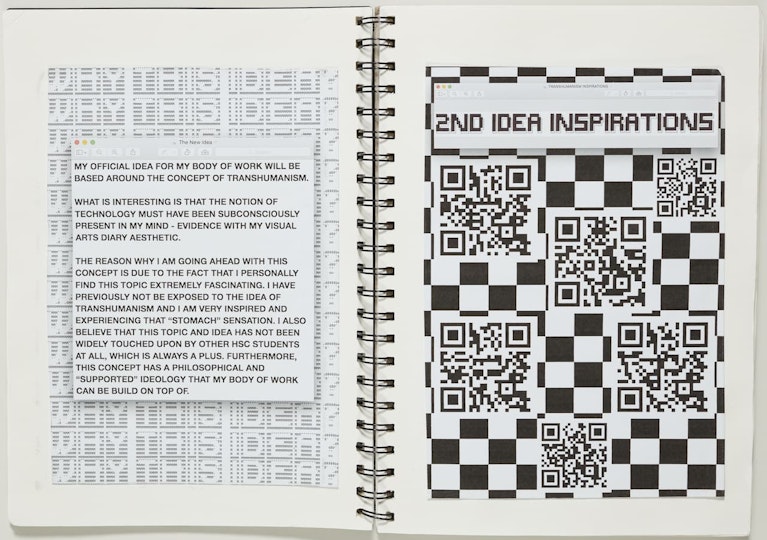 The New Idea
MY OFFICIAL IDEA FOR MY BODY OF WORK WILL BE
BASED AROUND THE CONCEPT OF TRANSHUMANISM.
WHAT IS INTERESTING IS THAT THE NOTION OF
TECHNOLOGY MUST HAVE BEEN SUBCONSCIOUSLY
PRESENT IN MY MIND - EVIDENCE WITH MY VISUAL
ARTS DIARY AESTHETIC.
THE REASON WHY I AM GOING AHEAD WITH THIS
CONCEPT IS DUE TO THE FACT THAT I PERSONALLY
FIND THIS TOPIC EXTREMELY FASCINATING. I HAVE
PREVIOUSLY NOT BE EXPOSED TO THE IDEA OF
TRANSHUMANISM AND I AM VERY INSPIRED AND
EXPERIENCING THAT “STOMACH” SENSATION. I ALSO
BELIEVE THAT THIS TOPIC AND IDEA HAS NOT BEEN
WIDELY TOUCHED UPON BY OTHER HSC STUDENTS
AT ALL, WHICH IS ALWAYS A PLUS. FURTHERMORE,
THIS CONCEPT HAS A PHILOSOPHICAL AND
“SUPPORTED” IDEOLOGY THAT MY BODY OF WORK
CAN BE BUILD ON TOP OF.
TRANSHUMANISM INSPIRATIONS
2ND IDEA INSPIRATIONS